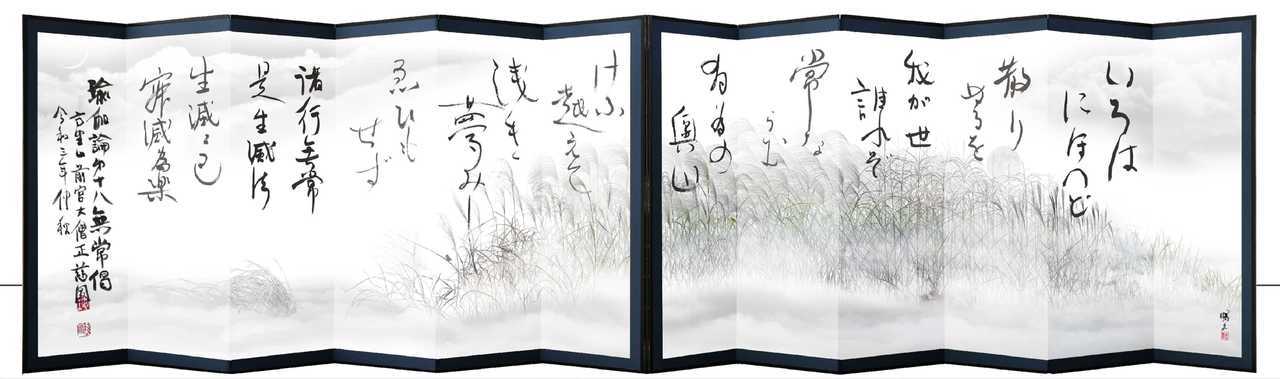 いろは
にほへど
散り
ぬるを
我が世
誰れぞ
常な
らむ
有為の
奥山
けふ
越えて
浅き
夢みし
ゑひも
せず
諸行無常
是生滅法
生滅々已
寂滅為楽
瑜伽論第十八無常偈
高野山前官大僧正
令和三年仲秋